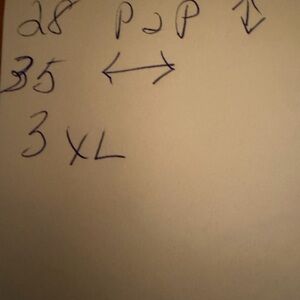 28 P2P ↕
35 ↔
3 XL